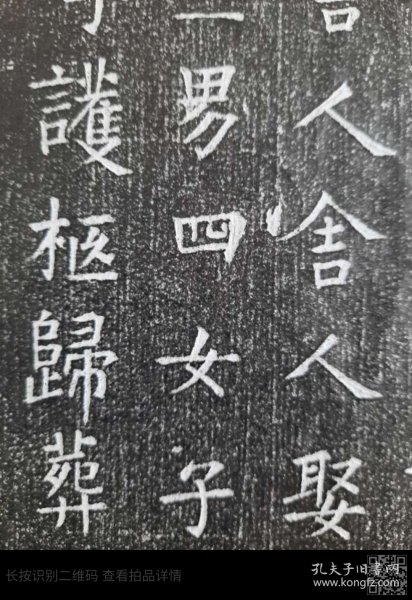 人舍人娶
一男四女子
護柩歸葬
长按识别二维码 查看拍品详情
孔夫子旧书网
www.kongfz.com